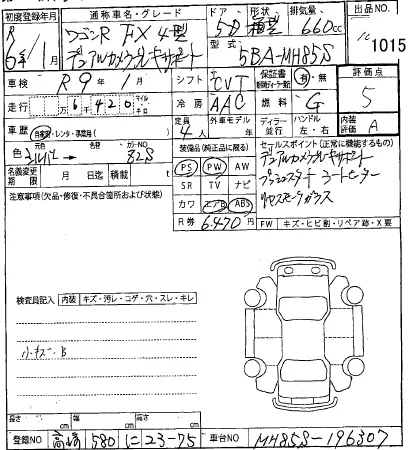 初度登録年月 通称車名・グレード ドア 形状 排気量 出品NO
R 6年/1月 ワゴンR FX 4型 5D 箱型 660cc 1015
デュアルカメラブレーキサポート 型式 5BA-MH85S
車検 R9年1月 シフト CVT 保証書 有・無 評価点 5
走行 万6420 マイル キロ 冷房 AAC 燃料 G
車歴 自家用・レンタ・事業用( ) 定員 4人 外車モデル ディーラー 並行 ハンドル 左・右 内装評価 A
色 元色 シルバー → 色替 カラーNO 82S
装備品(純正品に限る) セールスポイント(正常に機能するもの)
名義変更期限 月 日迄 積載 t
PS PW AW デュアルカメラブレーキサポート
SR TV ナビ プッシュスタート シートヒーター
注意事項(欠品・修復・不具合箇所および状態)
カワ エアB ABS
R券 6,470円
FW キズ・ヒビ割・リペア跡・X要
検査員記入 内装 キズ・汚レ・コゲ・穴・スレ・キレ
小キズ・B
長さ cm 幅 cm 高さ cm
登録NO 高崎 580 に 23-75 車台NO MH85S-196307